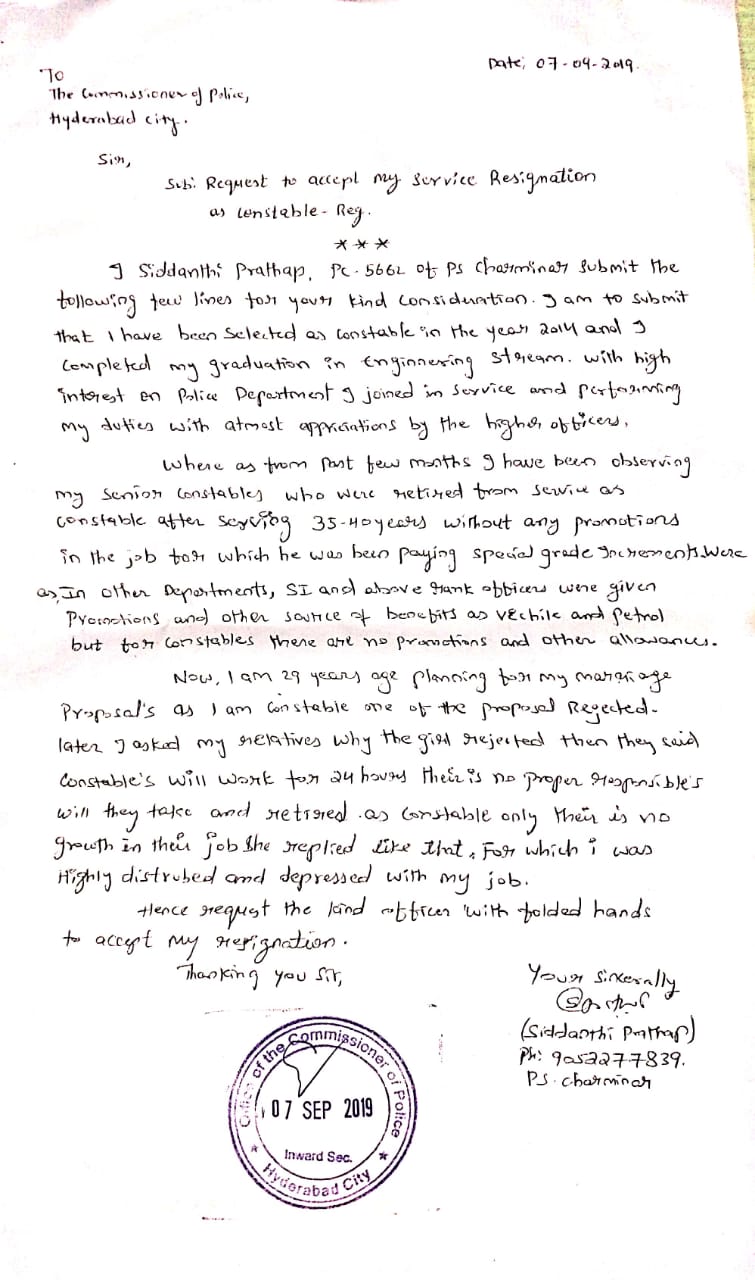 Date; 07-04-2019.
To
The Commissioner of Police,
Hyderabad city.
Sir,
Sub: Request to accept my service Resignation
as constable - Reg.
***
I Siddanthi Prathap, PC-5662 of PS Charminar submit the
following few lines for your kind consideration. I am to submit
that I have been selected as constable in the year 2014 and I
completed my graduation in Enginnering stream. with high
interest on Police Department I joined in service and performing
my duties with atmost appriciations by the higher officers.
Where as from past few months I have been observing
my senior constables who were retired from service as
constable after serving 35-40 years without any promotions
in the job for which he was been paying special grade Increments were
as, In other Departments, SI and above rank officers were given
Promotions and other source of benefits as vechile and petrol
but for constables there are no promotions and other allowances.
Now, I am 29 years age planning for my marriage
Proposal's as I am constable one of the proposal Regected.
later I asked my relatives why the girl rejected then they said
constable's will work for 24 hours their is no proper responsible's
will they take and retired as constable only their is no
growth in their job she replied like that, For which i was
Highly distrubed and depressed with my job.
Hence request the kind officer with folded hands
to accept my resignation.
Thanking you sir,
Your sincerally
(Siddanthi Prathap)
Ph: 9052277839.
PS. charminar
Office of the Commissioner of Police
07 SEP 2019
Inward Sec.
Hyderabad City